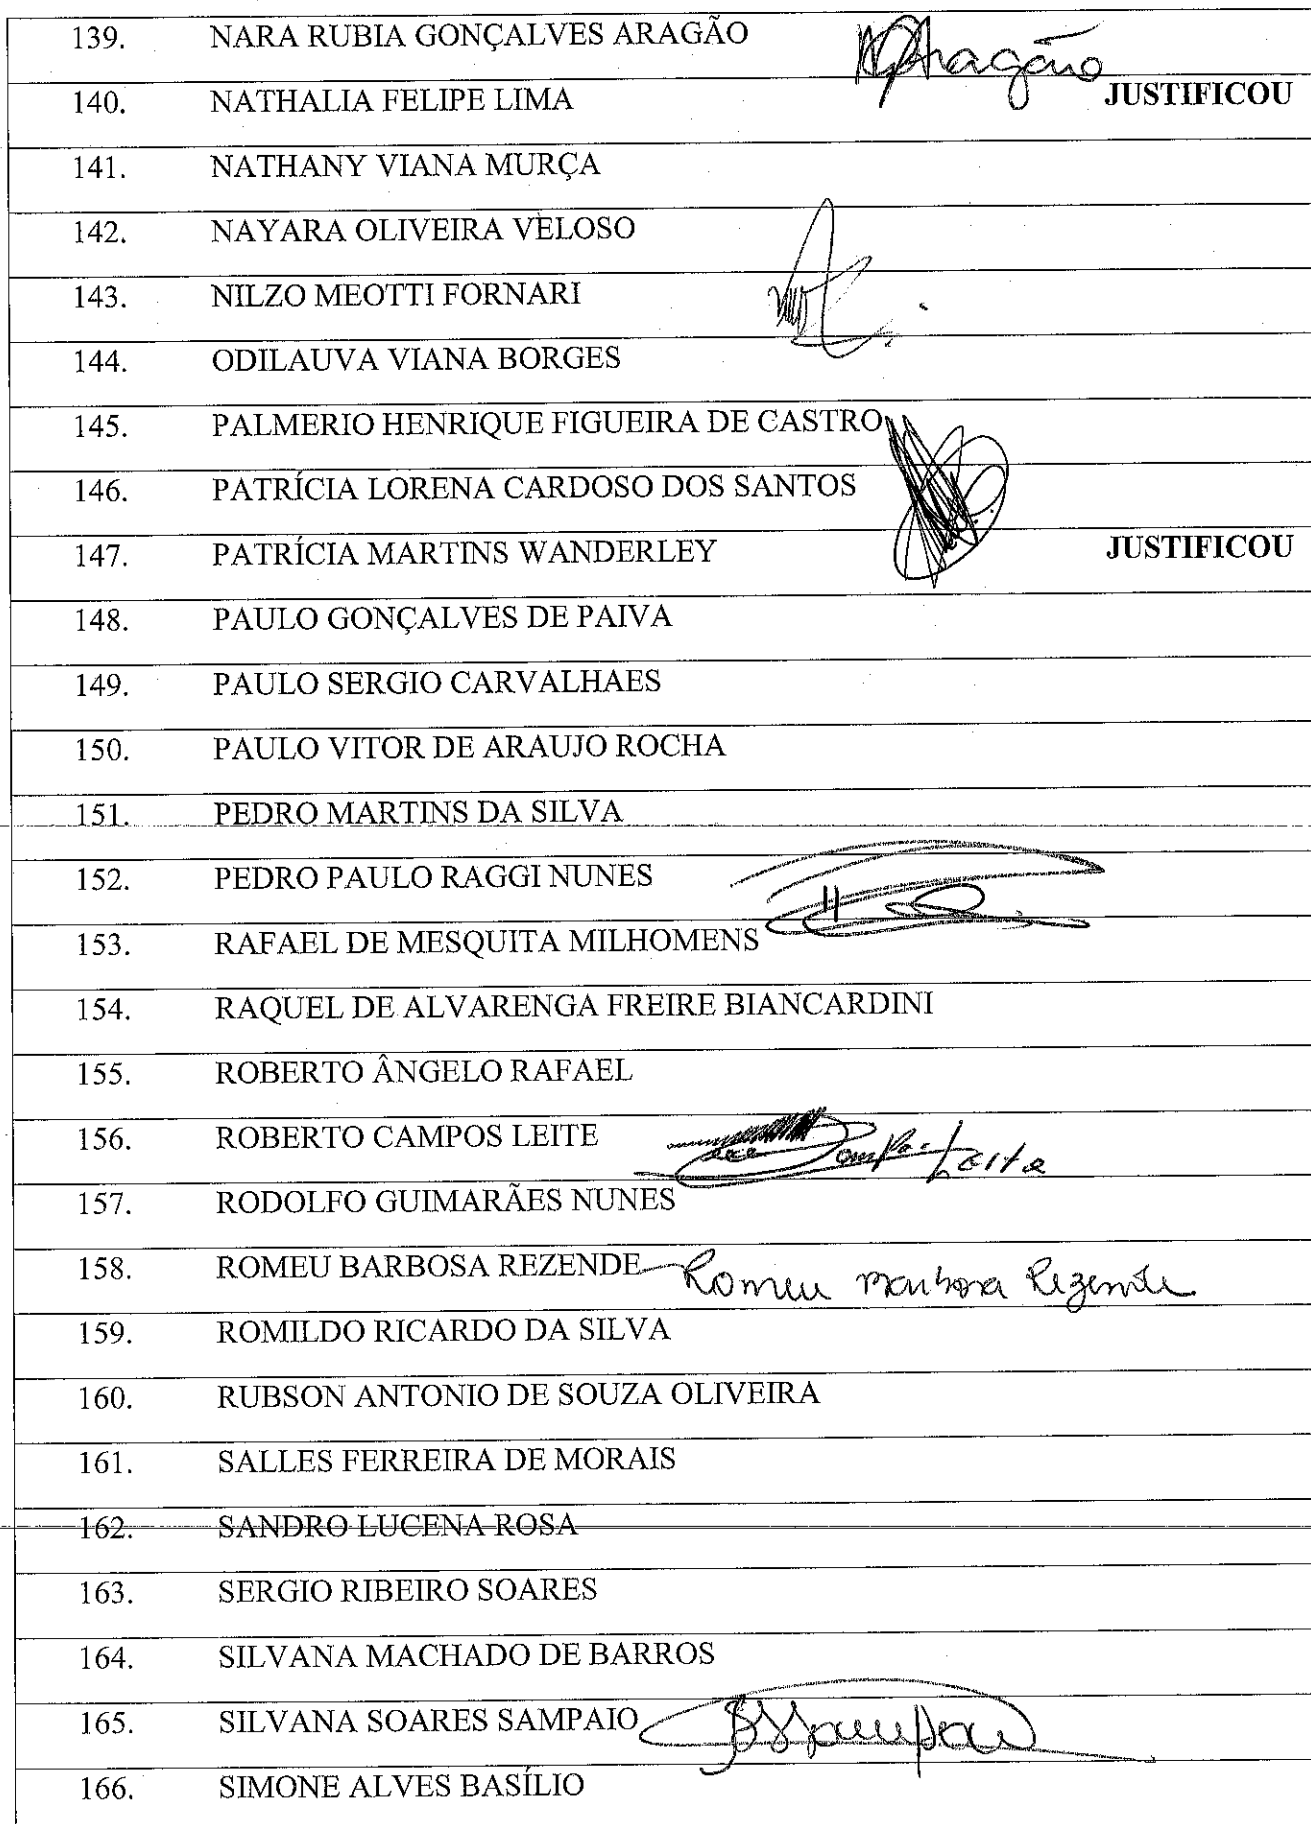 139. NARA RUBIA GONÇALVES ARAGÃO Aragão
140. NATHALIA FELIPE LIMA JUSTIFICOU
141. NATHANY VIANA MURÇA
142. NAYARA OLIVEIRA VELOSO
143. NILZO MEOTTI FORNARI
144. ODILAUVA VIANA BORGES
145. PALMERIO HENRIQUE FIGUEIRA DE CASTRO
146. PATRÍCIA LORENA CARDOSO DOS SANTOS
147. PATRÍCIA MARTINS WANDERLEY JUSTIFICOU
148. PAULO GONÇALVES DE PAIVA
149. PAULO SERGIO CARVALHAES
150. PAULO VITOR DE ARAUJO ROCHA
151. PEDRO MARTINS DA SILVA
152. PEDRO PAULO RAGGI NUNES
153. RAFAEL DE MESQUITA MILHOMENS
154. RAQUEL DE ALVARENGA FREIRE BIANCARDINI
155. ROBERTO ÂNGELO RAFAEL
156. ROBERTO CAMPOS LEITE Leite
157. RODOLFO GUIMARÃES NUNES
158. ROMEU BARBOSA REZENDE Romeu Barbosa Rezende
159. ROMILDO RICARDO DA SILVA
160. RUBSON ANTONIO DE SOUZA OLIVEIRA
161. SALLES FERREIRA DE MORAIS
162. SANDRO LUCENA ROSA
163. SERGIO RIBEIRO SOARES
164. SILVANA MACHADO DE BARROS
165. SILVANA SOARES SAMPAIO
166. SIMONE ALVES BASÍLIO